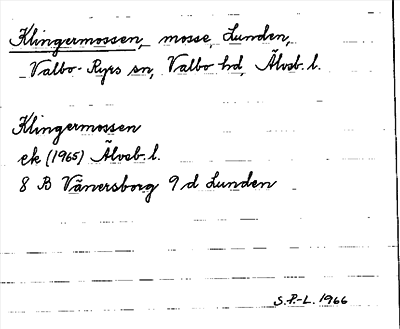 Klingermossen, mosse, Lunden,
Valbo-Ryrs sn, Valbo hd, Älvsb. l.
Klingermossen
ek (1965) Älvsb. l.
8 B Vänersborg 9 d Lunden
S.P.-L. 1966